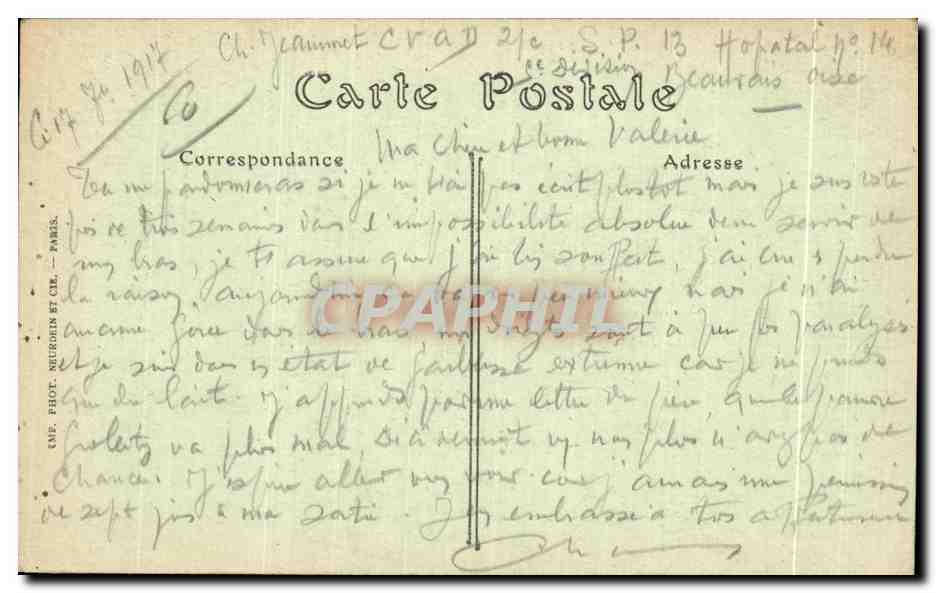 Ch. Jeaunnet CVAD 2/c S.P. 13 Hopatal no. 14
2e Division Beauvais Oise
Ce 17 7e 1917
Carte Postale
Ma chère et bonne Valerie
Correspondance
Adresse
Tu me pardonneras si je ne t'ai pas écrit plus tôt mais je suis resté
trois semaines dans l'impossibilité absolue de me servir de
mes bras, je t'assure que j'ai bien souffert, j'ai cru perdre
la raison, aujourd'hui va un peu mieux mais je n'ai
aucune force dans le bras, mes doigts sont à peu près paralysés
et je suis dans un état de faiblesse extreme car je ne prends
que du lait. J'apprends par une lettre du père, que le pauvre
va plus mal, vous non plus n'avez pas de
chance. J'espère aller vous voir car j'aurais une permission
de sept jours à ma sortie. Je
CPAPHIL
IMP. PHOT. NEURDEIN ET CIE. — PARIS.